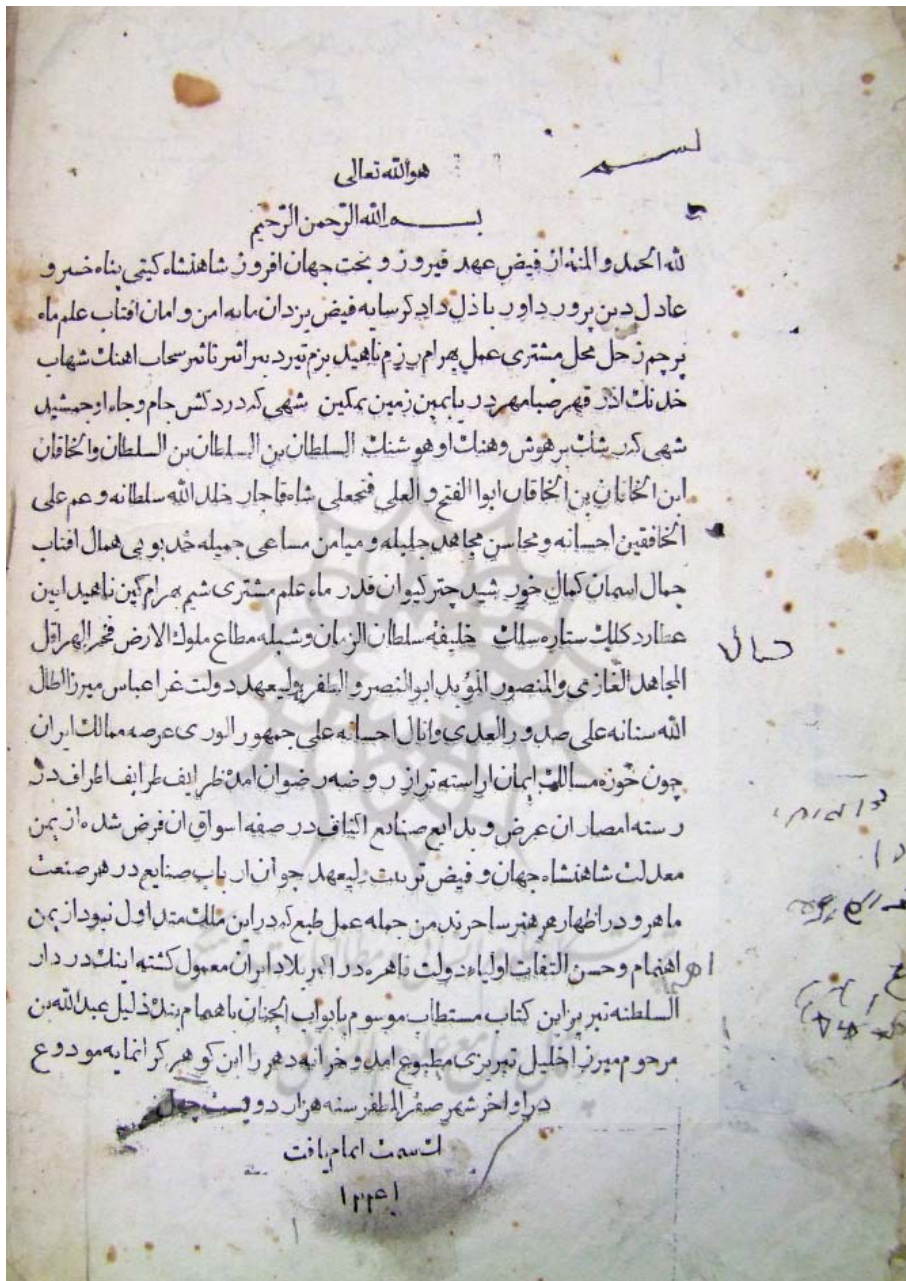 بسم
هوالله تعالی
بسم الله الرّحمن الرّحیم
لله الحمد و المنه از فیض عهد فیروز و بخت جهان افروز شاهنشاه کیتی پناه خسرو
عادل دین پرور داور باذل دادکر سایه فیض یزدان مایه امن و امان افتاب علم ماه
پرچم زحل محل مشتری عمل بهرام رزم ناهید بزم تیر دبیر اثیر تاثیر سحاب اهنك شهاب
خدنك اذر قهر صبا مهر دریا یمین زمین تمکین شهی که درد کش جام و جاه او جمشید
شهی که ریشك بر هوش و هنك او هوشنك السلطان بن السلطان بن السلطان و الخاقان
ابن الخاقان بن الخاقان ابوا الفتح و العلی فتحعلی شاه قاجار خلد الله سلطانه و عم علی
الخافقین احسانه و محاسن مجاهد جلیله و میامن مساعی جمیله خدیو بی همال افتاب
جمال اسمان کمال خورشید چتر کیوان قدر ماه علم مشتری شیم بهرام کین ناهید ایین
عطارد کلیك ستاره سلك خلیفه سلطان الزمان و شبله مطاع ملوك الارض فخر
المجاهد الغازی و المنصور المؤید ابو النصر و الظفر ولیعهد دولت غرا عباس میرزا اطال
الله سنانه علی صدور العدی و انال احسانه علی جمهور الوری عرصه ممالك ایران
چون حوزه مسالك ایمان اراسته تر از روضه رضوان امده ظرایف طرایف اطراف در
رسته امصار ان عرض و بدایع صنایع اکناف در صفه اسواق ان فرض شده از یمن
معدلت شاهنشاه جهان و فیض تربیت ولیعهد جوان ارباب صنایع در هر صنعت
ماهر و در اظهار هر هنر ساحرند من جمله عمل طبع که در این ملك متداول نبود از یمن
اهتمام و حسن التفات اولیاء دولت قاهره در اکثر بلاد ایران معمول کشته اینك در دار
السلطنه تبریز این کتاب مستطاب موسوم بابواب الجنان باهتمام بنده ذلیل عبدالله بن
مرحوم میرزا خلیل تبریزی مطبوع امد و خزانه دهر را این کوهر کرانمایه مودوع
در اواخر شهر صفر المظفر سنه هزار دویست چهل
یك سمت اتمام یافت
۱۲۴۱